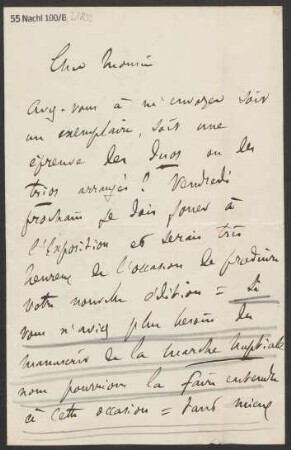 55 Nachl 100/B
Cher Monsieur
Avez-vous à m'envoyer soit
un exemplaire, soit une
épreuve des Duos ou des
trios arrangés ? Vendredi
prochain je dois jouer à
l'Exposition et serais très
heureux de l'occasion de produire
votre nouvelle édition = Si
vous n'aviez plus besoin du
manuscrit de la marche nuptiale
nous pourrions la faire entendre
à cette occasion = Tant mieux